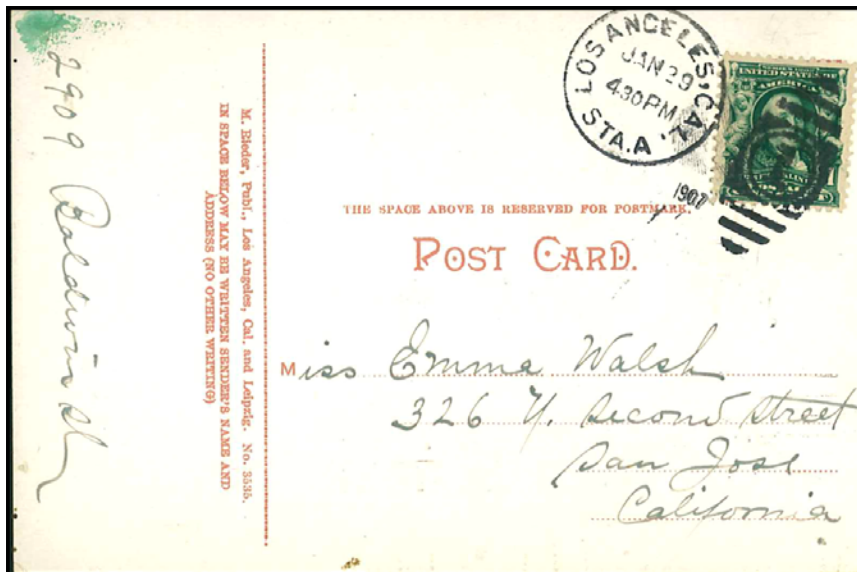 2909 Baldwin St
M. Rieder, Publ., Los Angeles, Cal. and Leipzig. No. 3535.
IN SPACE BELOW MAY BE WRITTEN SENDER'S NAME AND
ADDRESS (NO OTHER WRITING)
LOS ANGELES, CAL.
JAN 29
4 30 PM
STA. A
1907
UNITED STATES OF
AMERICA
1
THE SPACE ABOVE IS RESERVED FOR POSTMARK.
POST CARD.
Miss Emma Walsh
326 N. Second Street
San Jose
California